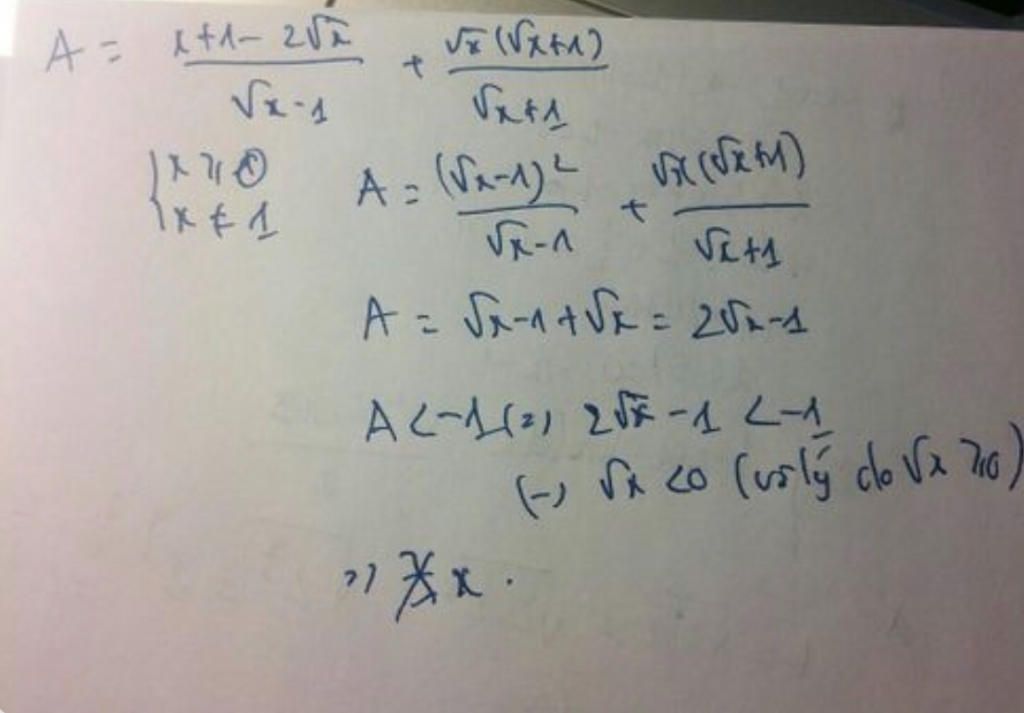 A = \frac{x+1-2\sqrt{x}}{\sqrt{x}-1} + \frac{\sqrt{x}(\sqrt{x}+1)}{\sqrt{x}+1}
{ x ≥ 0
x ≠ 1
A = \frac{(\sqrt{x}-1)^2}{\sqrt{x}-1} + \frac{\sqrt{x}(\sqrt{x}+1)}{\sqrt{x}+1}
A = √x-1+√x = 2√x-1
A < -1 (=) 2√x - 1 < -1
(-) √x < 0 (vô lý do √x ≥ 0)
=) ∄ x .